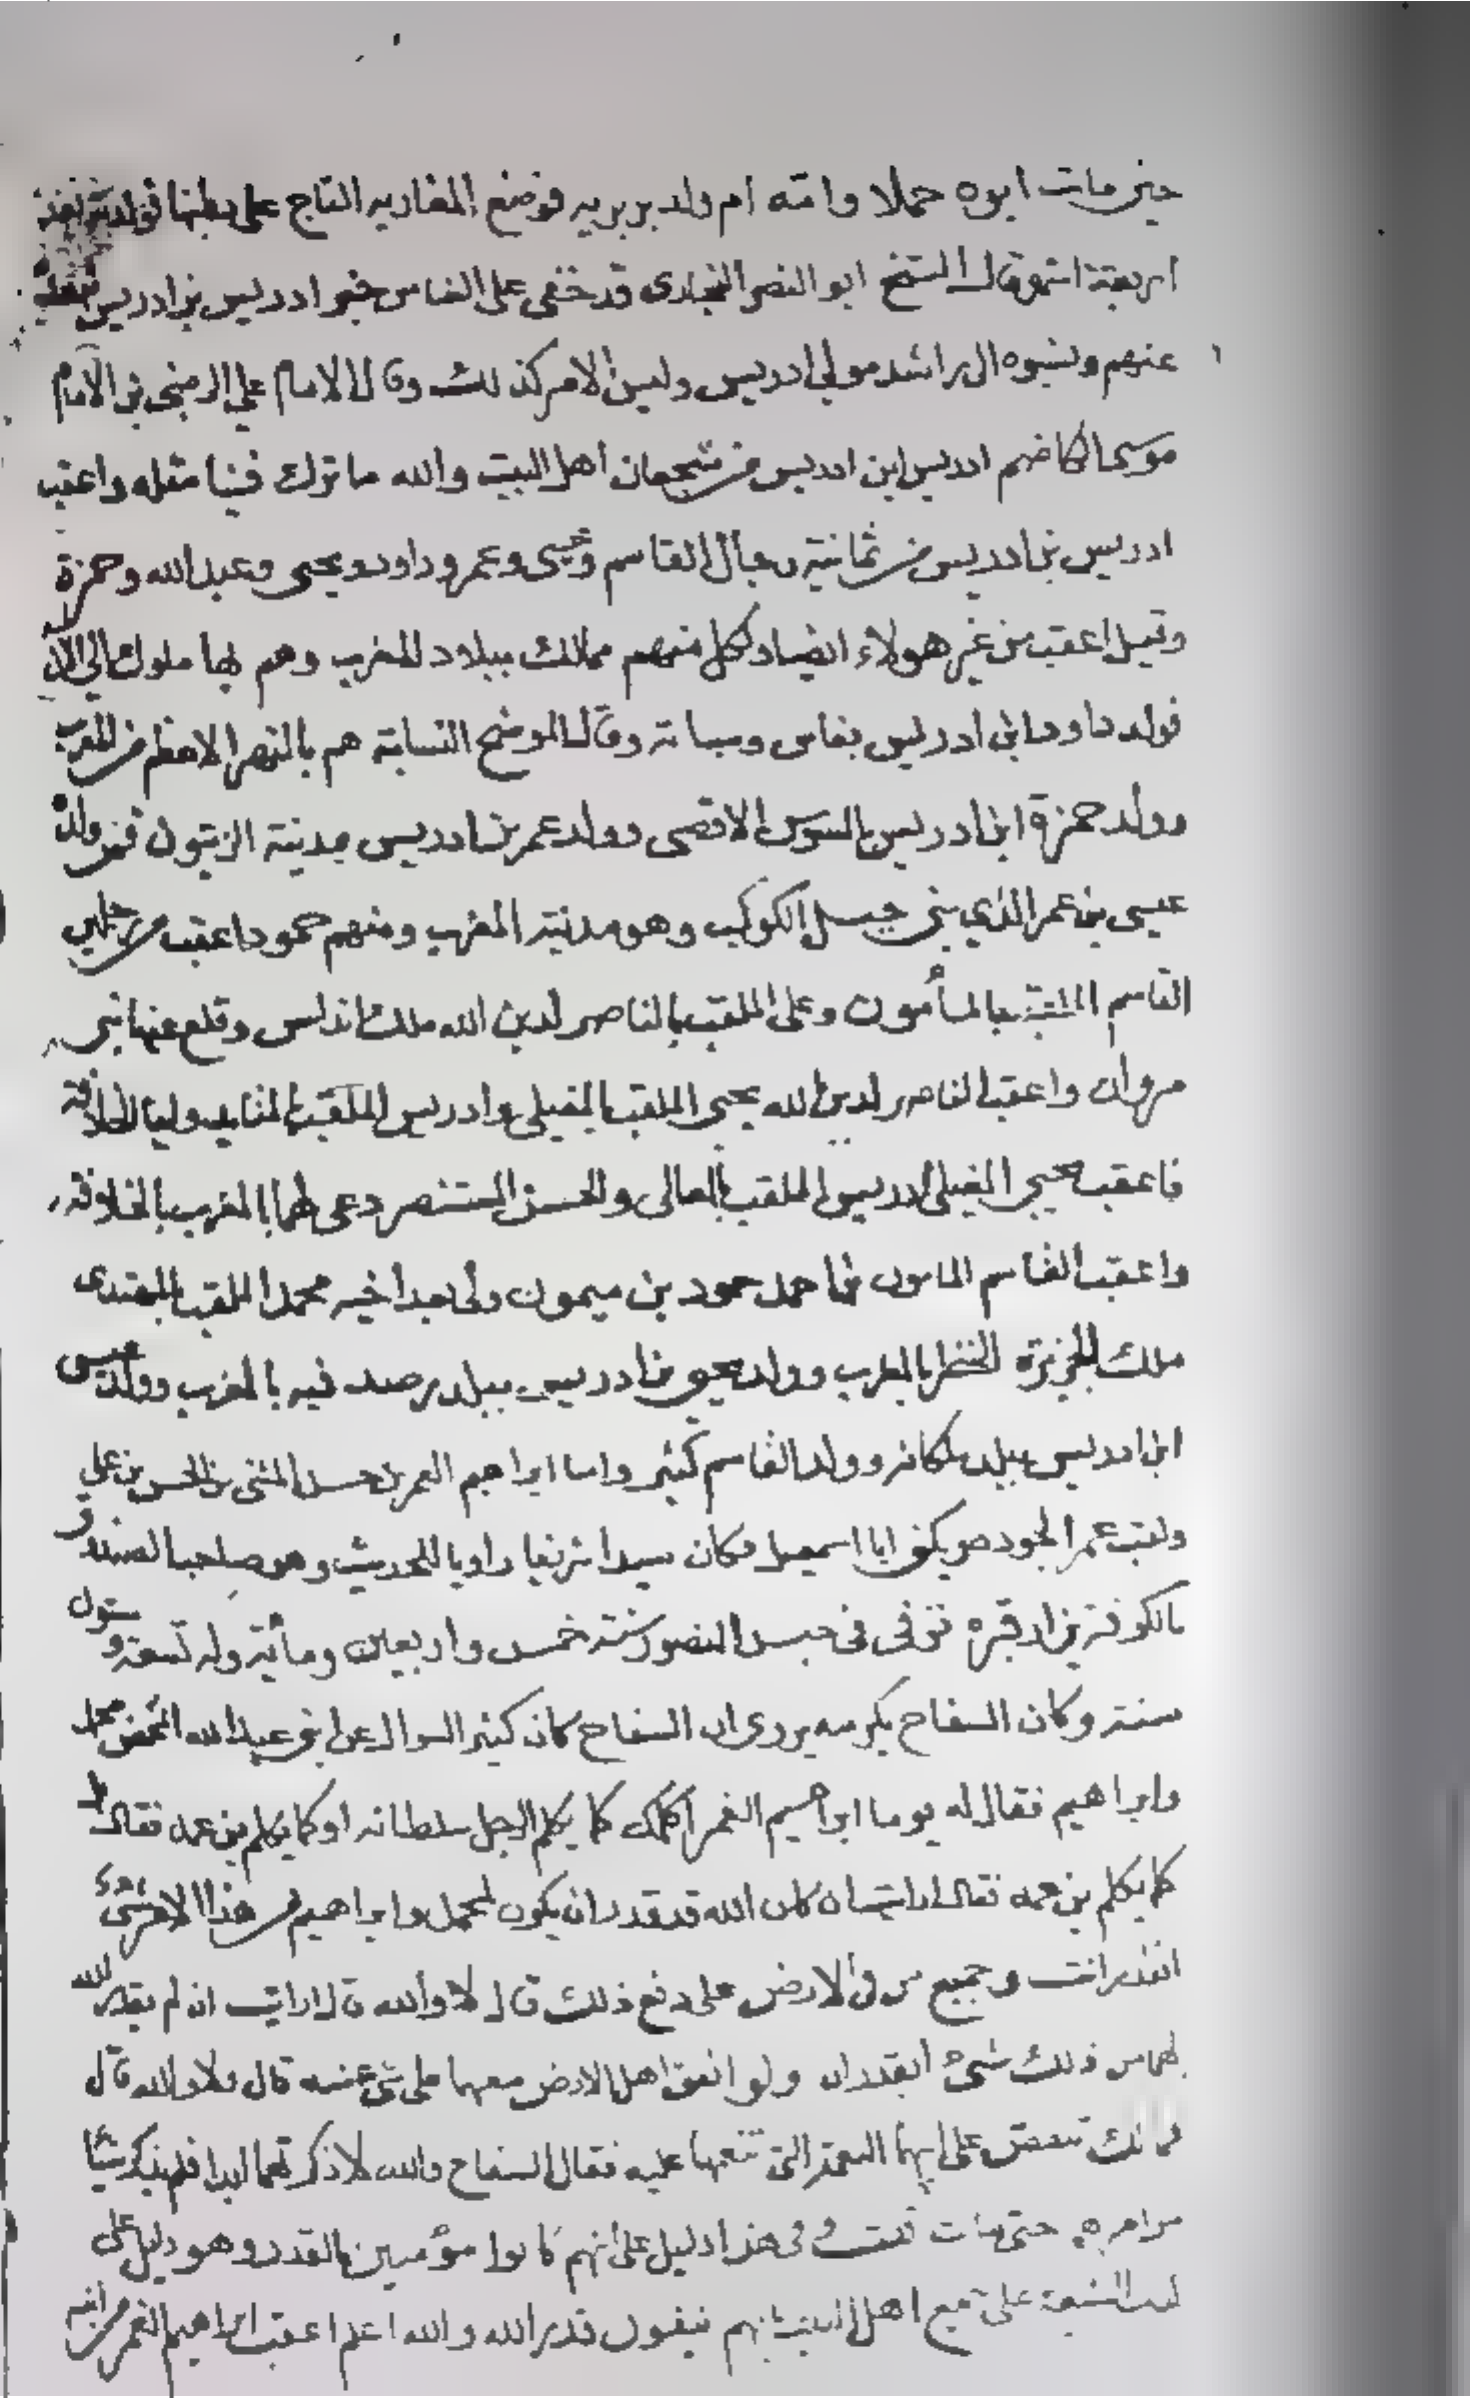 حين مات ابوه حملا وامه ام ولد بربريه فوضع المغاربه التاج على بطنها فولدته بعد
اربعة اشهر قال الشيخ ابو النصر البخارى قد خفى على الناس خبر ادريس بن ادريس
عنهم ونسبوه الى راشد مولى ادريس وليس الامر كذلك وقال الامام على الرضى بن الامام
موسى الكاضم ادريس ابن ادريس من شجعان اهل البيت والله ما ترك فينا مثله واعقب
ادريس بن ادريس من ثمانية رجال القاسم وعيسى وعمر وداود ويحيى وعبد الله وحمزة
وقيل اعقب من غير هولاء ايضا ولكل منهم ممالك ببلاد المغرب وهم بها ملوك الى الان
فولد داود ابن ادريس بفاس وسباته وقال الموضح النسابة هم بالنهر الاعظم من المغرب
وولد حمزة ابن ادريس بالسوس الاقصى وولد عمر بن ادريس مدينة الزيتون فمن ولده
عيسى بن عمر الذي بنى جبل الكوكب وهو مدنية المغرب ومنهم حمود اعقب من رجلين
القاسم الملقب بالمأمون وعلى الملقب بالناصر لدين الله ملك اندلس وقلع عنها بنى
مروان واعقب الناصر لدين الله يحيى الملقب بالمغيلى وادريس الملقب بالمتايد وليا الخلافة
فاعقب يحيى المغيلى ادريس الملقب بالعالى والحسن المستنصر دعى لهما بالمغرب بالخلافة
واعقب القاسم المامون بن احمد حمود بن ميمون ولى بعد اخيه محمد الملقب بالمهتدى
ملك الجزيرة الخضرا بالمغرب وولد يحيى بن ادريس ببلد رصد فيه بالمغرب وولد عيسى
ابن ادريس ببلد ملكانه وولد القاسم كثير واما ابراهيم الغمر بن حسن المثنى بن الحسن بن على
ولقب عمر الجوده ويكنى ابا اسمعيل فكان سيدا شريفا راويا للحديث وهو صاحب الصندوق
بالكوفة يزار قبره توفى فى حبس المنصور سنة خمس واربعين ومأية وله تسعة وستون
سنة وكان السفاح يكرمه يروى ان السفاح كان كثير السوال عن ابنى عبد الله المحض محمد
وابراهيم فقال له يوما ابراهيم الغمر اكلمك كما يكلم الرجل سلطانه او كما يكلم بن عمه فقال له
كما يكلم بن عمه فقال ارايت ان كان الله قد قدر ان يكون لمحمد وابراهيم من هذا الامر شىء
اتقدر انت وجميع من فى الارض على دفع ذلك قال لا والله قال ارايت ان لم يقدر الله
لهما من ذلك شىء ايقدران ولو اتفق اهل الارض معهما على شئ منه قال لا والله قال
فما لك تنغص على ابيهما النعمة التى تنعمها عليه فقال السفاح والله لا ذكرتهما ابدا فلم يذكر شيئا
من امرهم حتى مات قلت وفى هذا دليل على انهم كانوا مؤمنين بالقدر وهو دليل على
الشيعة على جميع اهل البيت انهم ينفون قدر الله والله اعلم اعقب ابراهيم الغمر من ابنه